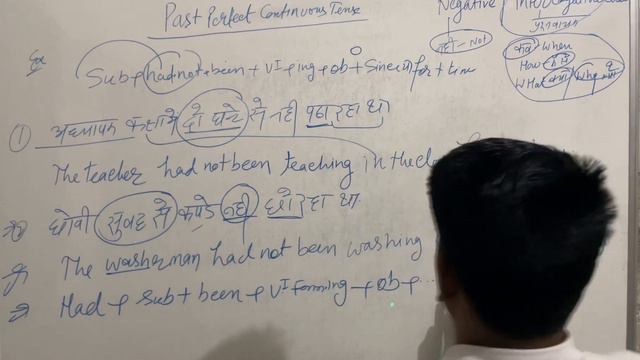 Past Perfect Continuous Tense
Negative
नही - Not
कब When
How कैसे
What क्या Why क्यों
Ex
Sub + had not + been + VI + ing + ob + Since या for + time
① अध्यापक कक्षा में दो घन्टे से नही पढा रहा था
The teacher had not been teaching in the
धोबी सुबह से कपडे नही धो रहा था
The washerman had not been washing
Had + Sub + been + VI forming + ob + ...